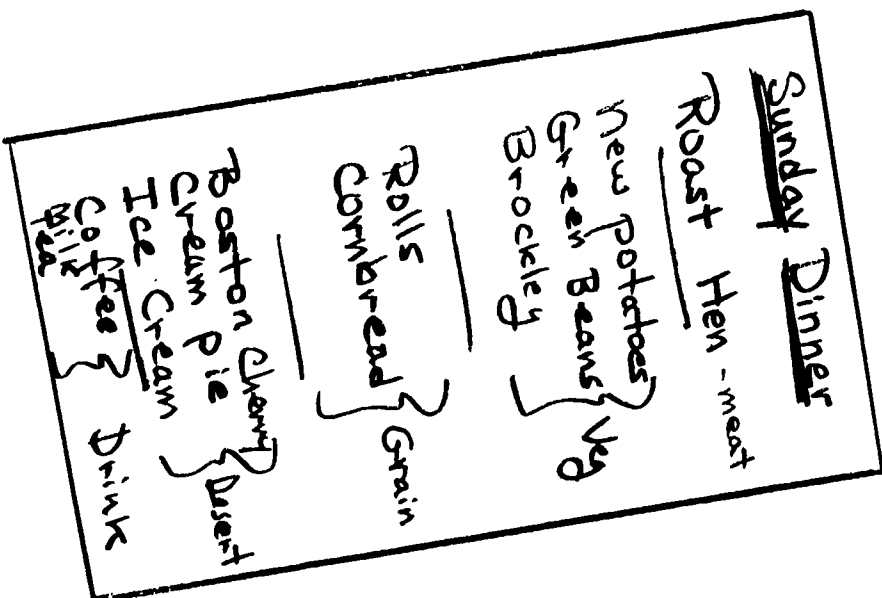 Sunday Dinner
Roast Hen - meat
new potatoes
Green Beans } Veg
Brockley
Rolls
Cornbread } Grain
Boston Cherry
Cream Pie } Desert
Ice Cream
Coffee
Milk } Drink
tea